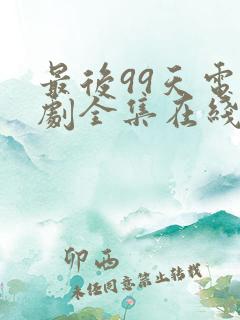 最後99天電
劇全集在綫
卯西
未任同意禁止转载